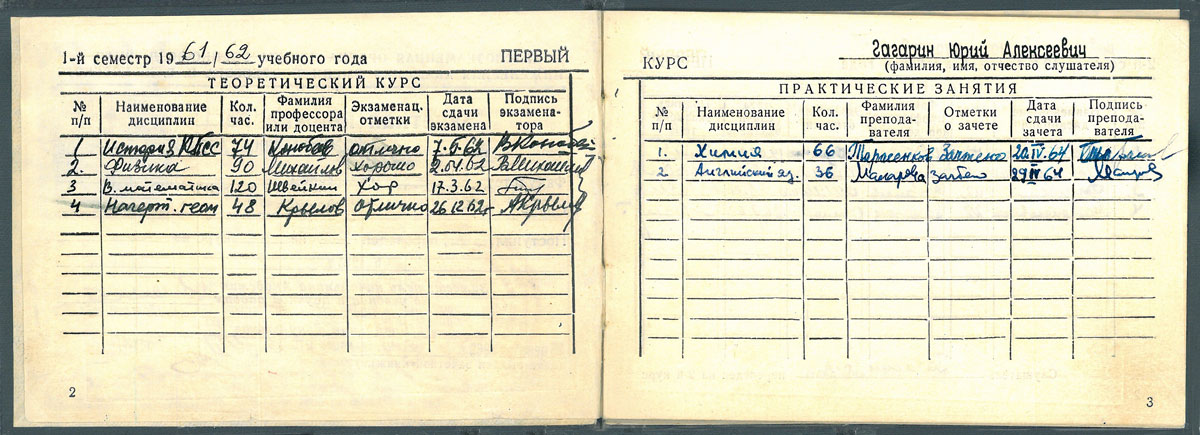 1-й семестр 1961/62 учебного года ПЕРВЫЙ
ТЕОРЕТИЧЕСКИЙ КУРС
№ п/п Наименование дисциплин Кол. час. Фамилия профессора или доцента Экзаменац. отметки Дата сдачи экзамена Подпись экзаменатора
1 История КПСС 74 отлично
2. Физика 90 Михайлов Хорошо 2.04.62
3 В. математика 120 Швейкин Хор 17.3.62
4 Начерт. геом 48 Крылов отлично 26 62г
2
КУРС Гагарин Юрий Алексеевич
(фамилия, имя, отчество слушателя)
ПРАКТИЧЕСКИЕ ЗАНЯТИЯ
№ п/п Наименование дисциплин Кол. час. Фамилия преподавателя Отметки о зачете Дата сдачи зачета Подпись преподавателя
1. Химия 66 Тарасенков Зачтено IV.64
2. Английский яз. 36 Макарова Зачтено 29 IV 64
3